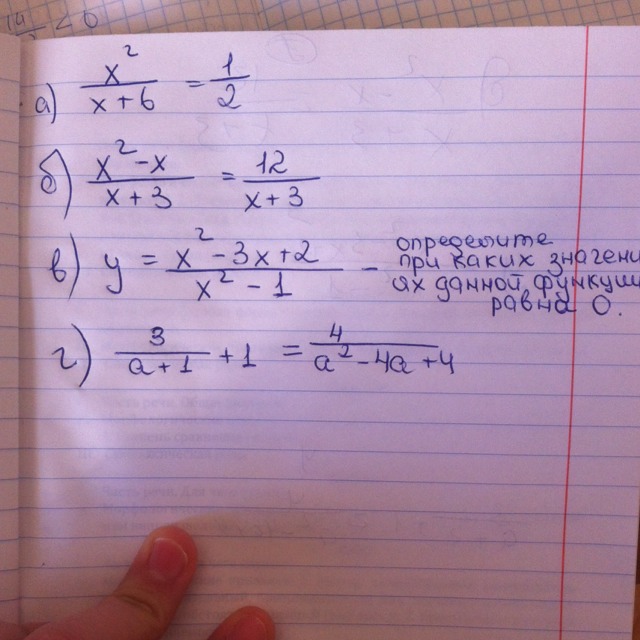 а) x²/(x+6) = 1/2
б) (x²-x)/(x+3) = 12/(x+3)
в) y = (x²-3x+2)/(x²-1) - определите
при каких значени
ях данной функци
равна 0.
г) 3/(a+1) +1 = 4/(a²-4a+4)